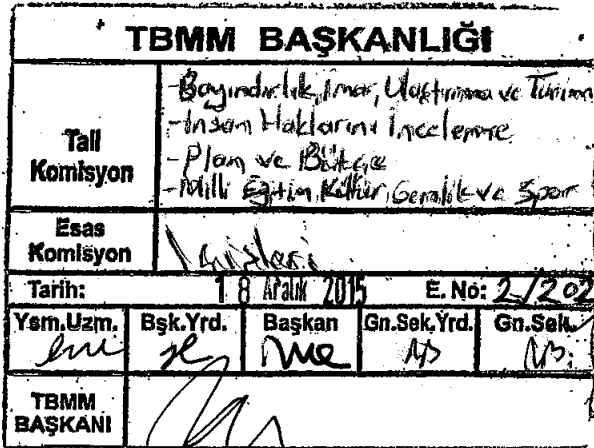 TBMM BAŞKANLIĞI
Tali Komisyon
-Bayındırlık, İmar, Ulaştırma ve Turizm
-İnsan Haklarını İnceleme
-Plan ve Bütçe
-Milli Eğitim, Kültür, Gençlik ve Spor
Esas Komisyon
İçişleri
Tarih: 18 Aralık 2015 E. No: 2/202
Ysm.Uzm. Bşk.Yrd. Başkan Gn.Sek.Yrd. Gn.Sek.
TBMM BAŞKANI